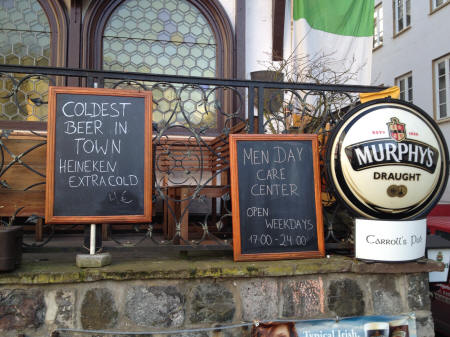 COLDEST
BEER IN
TOWN
HEINEKEN
EXTRA COLD
4€
MEN DAY
CARE
CENTER
OPEN
WEEKDAYS
17:00-24:00
ESTD 1856
MURPHY'S
DRAUGHT
Carroll's Pub
Typical Irish.